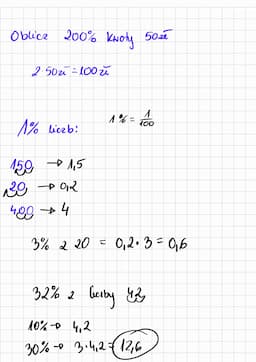 Oblicz 200% kwoty 50zł
2·50zł=100zł
1% = 1/100
1% liczb:
150 → 1,5
20 → 0,2
400 → 4
3% z 20 = 0,2·3 = 0,6
32% z liczby 42
10% → 4,2
30% → 3·4,2=12,6